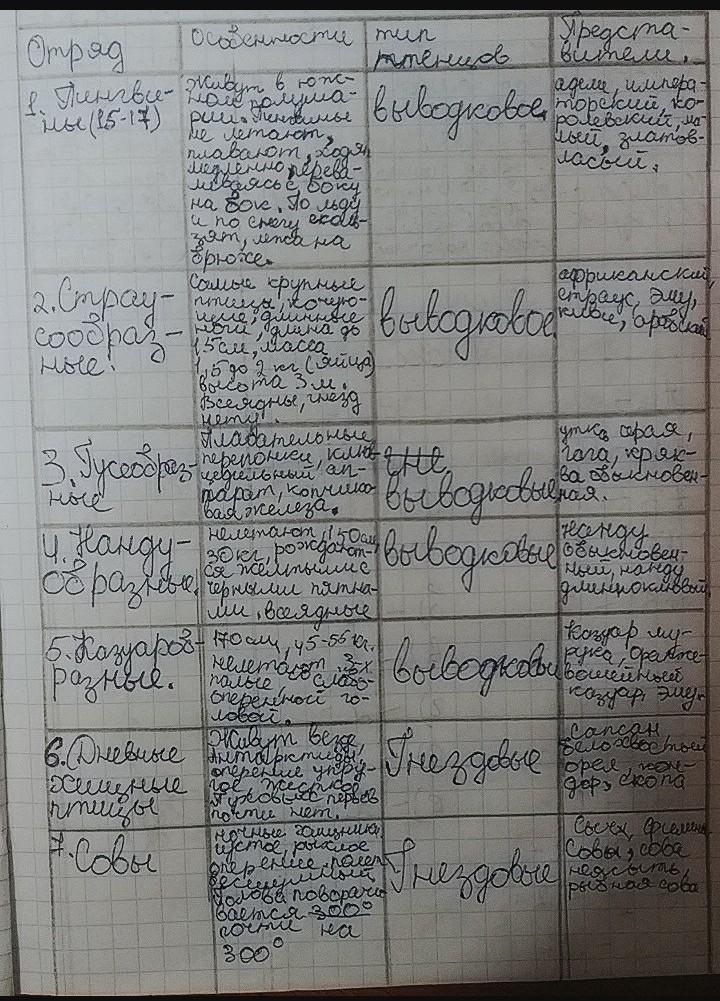 Отряд
Особенности
тип
птенцов
Предста-
вители.
1. Пингви-
ны (15-17)
Живут в юж-
ном полуша-
рии. Пингвины
не летают,
плавают, ходят
медленно, перева-
ливаясь с боку
на бок. По льду
и по снегу сколь-
зят, лёжа на
брюхе.
выводковое.
адели, импера-
торский, ко-
ролевский, ма-
лый, златов-
ласый.
2. Страу-
сообраз-
ные.
Самые крупные
птицы, кочую-
щие, длинные
ноги, длина до
15 см, масса
1,5 до 2 кг (яйца)
высота 3 м.
Всеядны, гнезд
нету.
выводковое
африканский,
страус, эму,
киви,
3. Гусеобраз-
ные
Плавательные
перепонки,
цедильный ап-
парат, копчико-
вая железа.
гне
выводковые
утка серая,
гага, кряк-
ва обыкновен-
ная.
4. Нанду-
образные.
нелетают, 150 см,
30 кг, рождают-
ся желтыми с
чёрными пятна-
ми, всеядные
выводковые
нанду
обыкновен-
ный, нанду
длинноклювый.
5. Казуарооб-
разные.
170 см, 45-55 кг.
нелетают, 3х
палые, со слабо-
оперенной го-
ловой.
выводковы
Казуар му-
рука, оранже-
вошейный
казуар, эму.
6. Дневные
хищные
птицы
Живут везде,
антарктиды,
оперение упру-
гое, жёсткое
Пуховых перьев
почти нет.
Гнездовые
сапсан,
белохвостый
орёл, кон-
дор, скопа
7. Совы
ночные хищники,
густое, рыхлое
оперение, полёт
бесшумный
голова поворачи-
вается 300°
почти на
300°
Гнездовые
Сыч, филин,
Совы, сова
неясыть,
рыбная сова